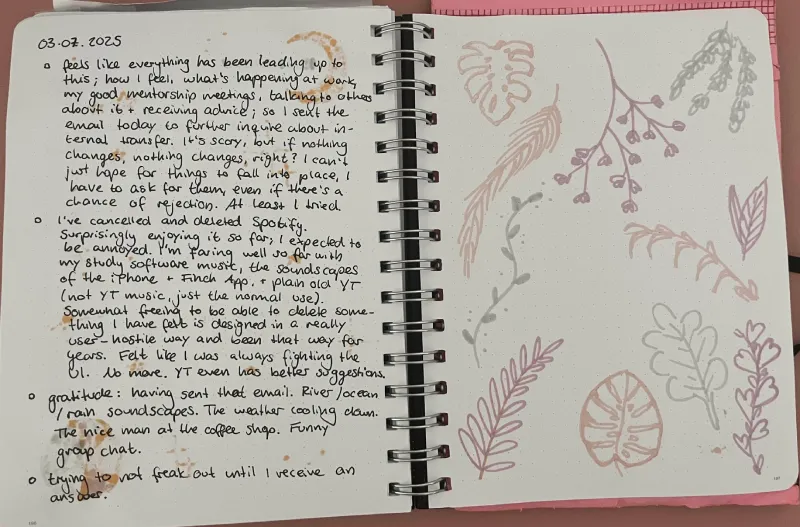 03.07.2025
feels like everything has been leading up to
this; how I feel, what's happening at work,
my good mentorship meetings, talking to others
about it + receiving advice; so I sent the
email today to further inquire about in-
ternal transfer. It's scary, but if nothing
changes, nothing changes, right? I can't
just hope for things to fall into place, I
have to ask for them, even if there's a
chance of rejection. At least I tried.
I've cancelled and deleted Spotify.
Surprisingly enjoying it so far; I expected to
be annoyed. I'm faring well so far with
my study software music, the soundscapes
of the iPhone + Finch App, + plain old YT
(not YT music, just the normal use).
Somewhat freeing to be able to delete some-
thing I have felt is designed in a really
user-hostile way and been that way for
years. Felt like I was always fighting the
UI. No more. YT even has better suggestions.
gratitude: having sent that email. River/ocean
/rain soundscapes. The weather cooling down.
The nice man at the coffee shop. Funny
group chat.
trying to not freak out until I receive an
answer.